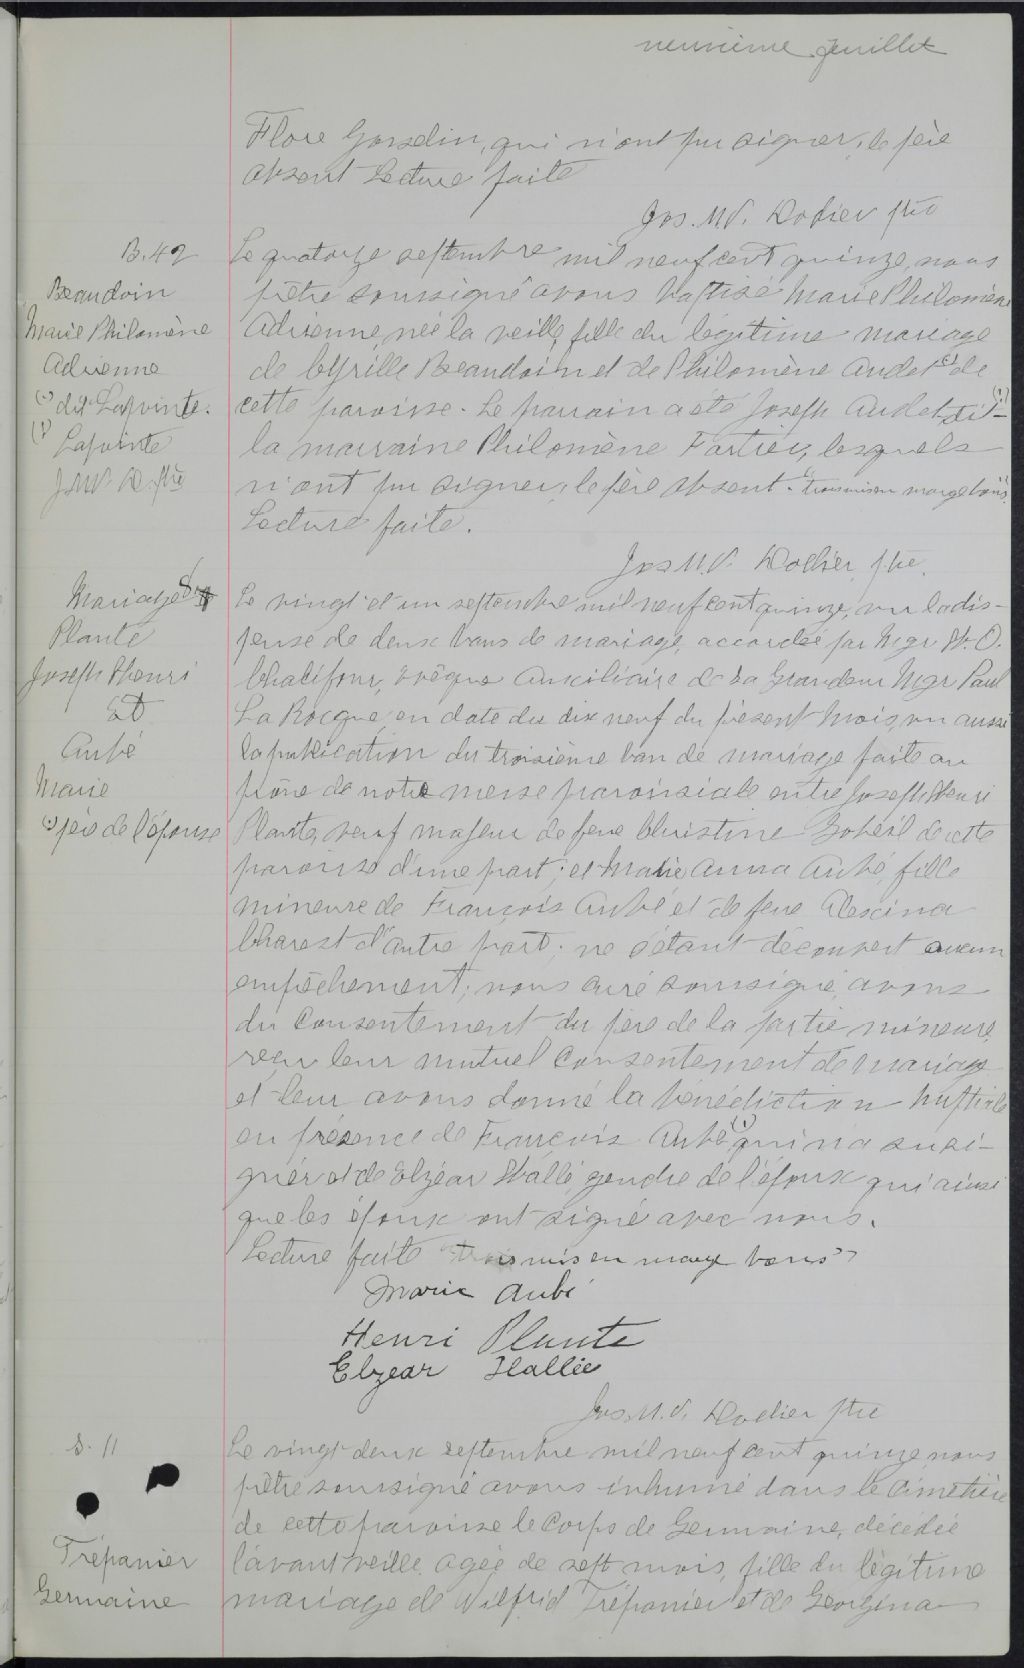 neuvième feuillet
Flore Gosselin, qui n'ont pu signer, le père
absent Lecture faite
Jos. M. V. Dodier ptre
B. 42
Beaudoin
Marie Philomène
Adrienne
(1) dit Lapointe.
(1) Lapointe
Le quatorze septembre mil neuf cent quinze, nous
prêtre soussigné avons baptisé Marie Philomène
Adrienne, née la veille, fille du légitime mariage
de Cyrille Beaudoin et de Philomène Audet (1) de
cette paroisse. Le parrain a été Joseph Audet dit (1)
la marraine Philomène Fortier, lesquels
n'ont pu signer, le père absent. mis en marge bons.
Lecture faite.
Jos M. V. Dodier, ptre.
Mariage 8
Plante
Joseph Henri
Et
Aubé
Marie
(1) père de l'épouse
Le vingt et un septembre mil neuf cent quinze, vu la dis-
pense de deux bans de mariage, accordée par Mgr H. O.
Chalifoux, évêque auxiliaire de Sa Grandeur Mgr Paul
La Rocque, en date du dix neuf du présent mois, vu aussi
la publication du troisième ban de mariage faite au
prône de notre messe paroissiale entre Joseph Henri
Plante, veuf majeur de feue Christine Boheil de cette
paroisse d'une part; et Marie Anna Aubé, fille
mineure de François Aubé et de feue Alexina
Charest d'autre part; ne s'étant découvert aucun
empêchement; nous curé soussigné, avons
du consentement du père de la partie mineure,
reçu leur mutuel consentement de mariage
et leur avons donné la bénédiction nuptiale
en présence de François Aubé (1) qui n'a su si-
gner et de Elzéar Hallé, gendre de l'époux qui ainsi
que les époux ont signé avec nous.
Lecture faite mis en marge bons
Marie Aubé
Henri Plante
Elzear Hallée
Jos. M. V. Dodier ptre
S. 11
Trépanier
Germaine
Le vingt-deux septembre mil neuf cent quinze, nous
prêtre soussigné avons inhumé dans le cimetière
de cette paroisse le corps de Germaine, décédée
l'avant veille, agée de sept mois, fille du légitime
mariage de Wilfrid Trépanier et de Georgina